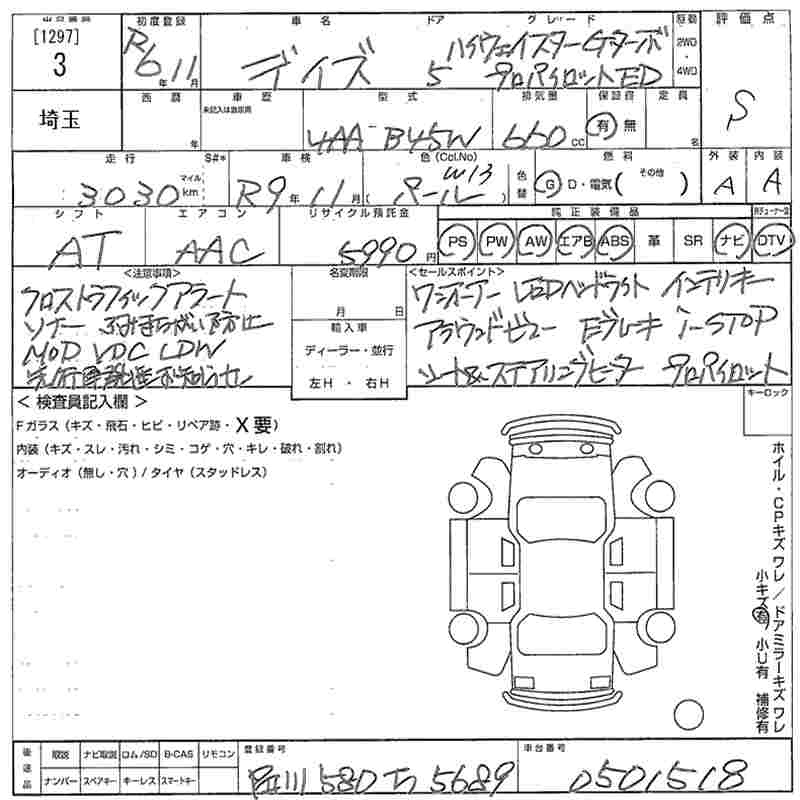 出品番号 初度登録 車名 ドア グレード 駆動 評価点
[1297] 3 R6年11月 デイズ 5 ハイウェイスターGターボ プロパイロットED 2WD・4WD S
埼玉 西暦 年 車歴 未記入は自家用 型式 4AA-B45W 排気量 660cc 保証書 有 無 定員 名
走行 3030 マイル km S#* 車検 R9年11月 色(Col.No) パール W13 色替 燃料 G・D・電気( その他 ) 外装 A 内装 A
シフト AT エアコン AAC リサイクル預託金 5990円 純正装備品 PS PW AW エアB ABS 革 SR ナビ DTV
<注意事項> 名変期限 <セールスポイント>
クロストラフィックアラート
ソナー ふみまちがい防止
MOD VDC LDW
先行車発進お知らせ
月 日
輸入車
ディーラー・並行
左H ・ 右H
ワンオーナー LEDヘッドライト インテリキー
アラウンドビュー Eブレーキ i-STOP
シート&ステアリングヒーター プロパイロット
<検査員記入欄> キーロック
Fガラス(キズ・飛石・ヒビ・リペア跡・X要)
内装(キズ・スレ・汚れ・シミ・コゲ・穴・キレ・破れ・割れ)
オーディオ(無し・穴)/タイヤ(スタッドレス)
ホイル・CPキズ ワレ/ドアミラーキズ ワレ
小キズ有 小U有 補修有
後送品 取説 ナビ取説 ロム/SD B-CAS リモコン 登録番号 車台番号
ナンバー スペアキー キーレス スマートキー 580 5689 0501518